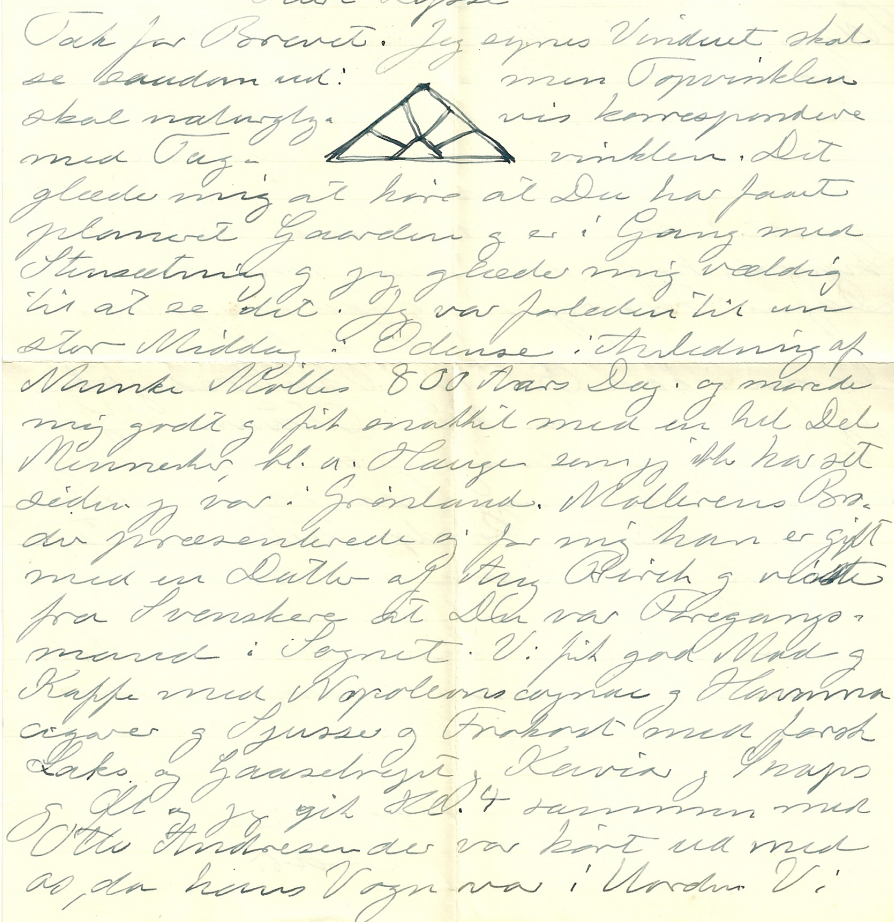 Tak for Brevet. Jeg synes Vinduet skal
se saadan ud: men Topvinklen
skal naturlig- vis korrespondere
med Tag- vinklen. Det
glæder mig at høre at Du har faaet
planeret Gaarden og er i Gang med
Stensætning og jeg glæder mig vældig
til at se det. Jeg var forleden til en
stor Middag i Odense i Anledning af
Munke Mølles 800 Aars Dag. og morede
mig godt og fik snakket med en hel Del
Mennesker, bl. a. Hauge som jeg ikke har set
siden jeg var i Grønland. Møllerens Bro-
der præsenterede sig for mig han er gift
med en Datter af Aug Birch og vidste
fra Svenskere at Du var Foregangs-
mand i Sognet. Vi fik god Mad og
Kaffe med Napoleonscognac og Havanna
cigarer og Sjusser og Frokost med fersk
Laks og Gaasebryst, Kaviar og Snaps
og Øl og jeg gik Kl. 4 sammen med
Otto Andresen der var kørt ud med
os, da hans Vogn var i Uorden Vi